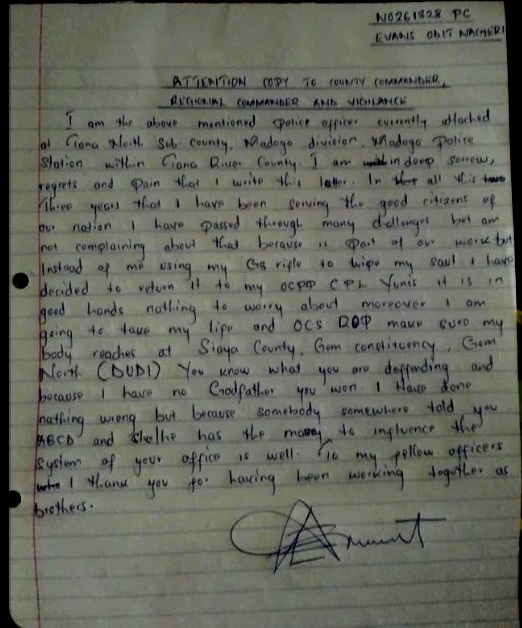 NO261328 PC
EVANS OBIT NACHERI
ATTENTION COPY TO COUNTY COMMANDER,
REGIONAL COMMANDER AND VIGILANCE
I am the above mentioned police officer currently attached
at Tana North Sub-county, Madogo division, Madogo Police
Station within Tana River County. I am in deep sorrow,
regrets and pain that I write this later. In all this
three years that I have been serving the good citizens of
our nation I have passed through many challenges but am
not complaining about that because is part of our work but
Instead of me using my G3 rifle to wipe my soul I have
decided to return it to my OCPP CPL Yunis it is in
good hands nothing to worry about moreover I am
going to take my life and OCS make sure my
body reaches at Siaya County, Gem constituency, Gem
North (DUDI) You know what you are deffending and
because I have no Godfather you won. I Have done
nothing wrong but because somebody somewhere told you
ABCD and She/he has the money to influence the
system of your office is well. To my fellow officers
I thank you for having been working together as
brothers.